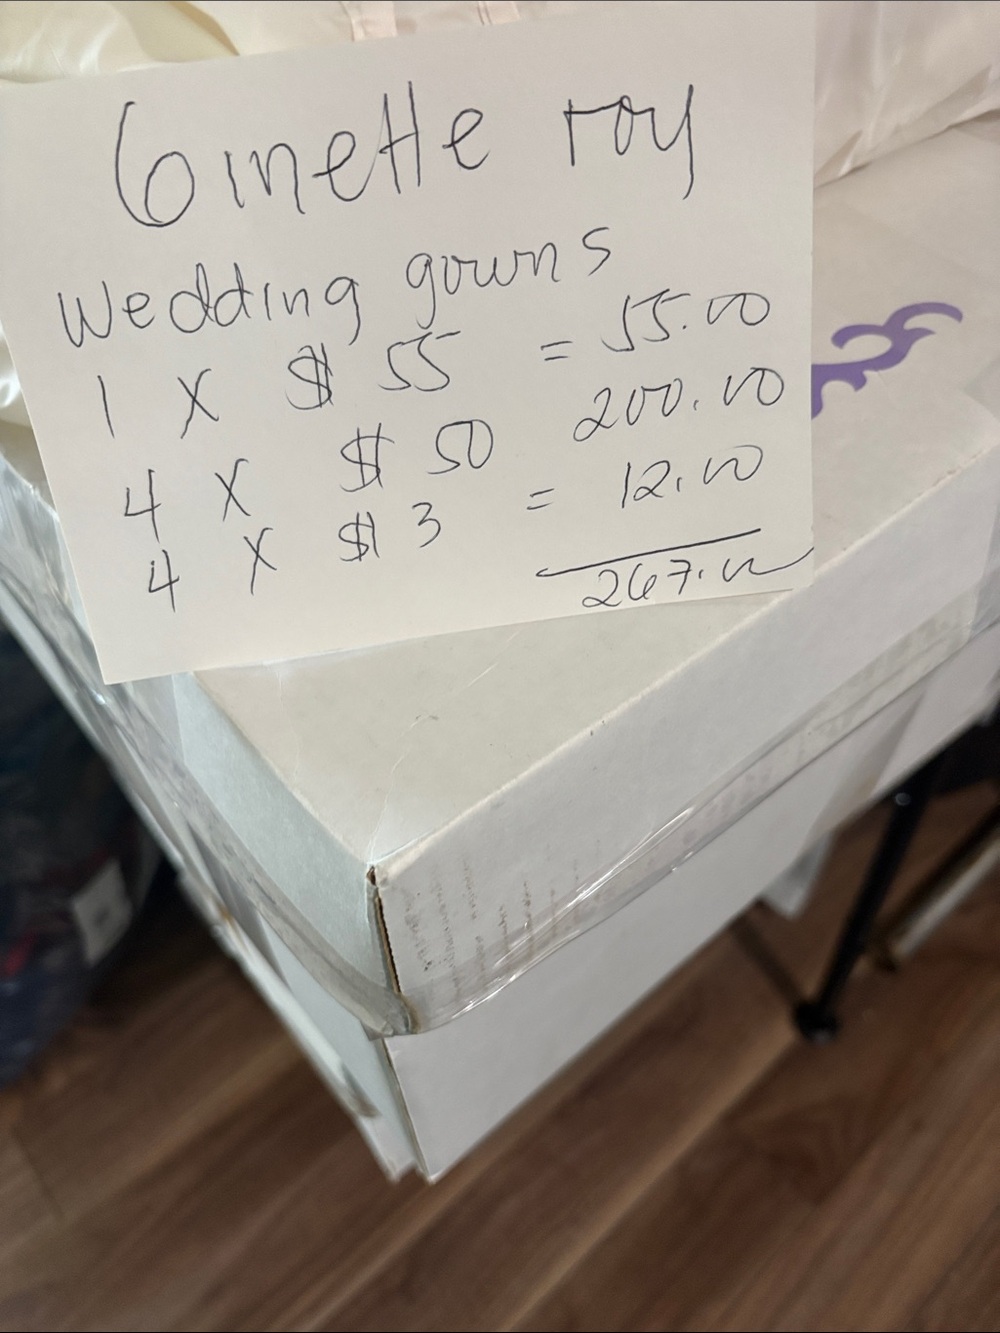 Ginette roy
Wedding gowns
1 X $ 55 = 55.00
4 X $ 50 200.00
4 X $ 3 = 12.00
267.00